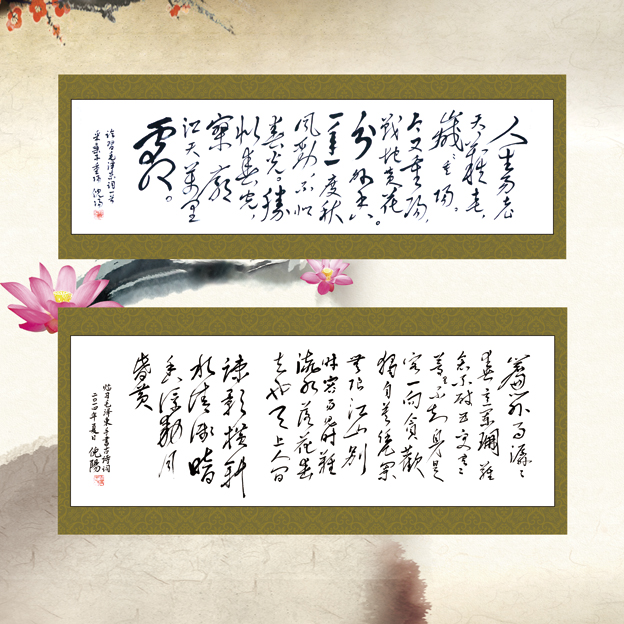 人生易老
天难老，
岁岁重阳。
今又重阳，
战地黄花
分外香。
一年一度秋
风劲不似
春光。胜
似春光，
寥廓
江天万里
霜。
毛泽东词一首
采桑子重阳
帘外雨潺潺
春意阑珊 罗
衾不耐五更寒
梦里不知身是
客一向贪欢
独自莫凭栏
无限江山别
时容易见时难
流水落花春
去也天上人间
疏影横斜
水清浅暗
香浮动月
昏黄
临习毛泽东手书古诗词
二〇一四年夏日